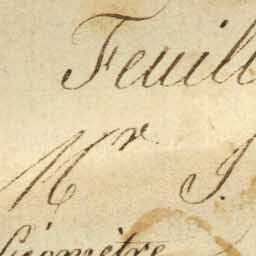 Feuill
Mr J.
Géomètre